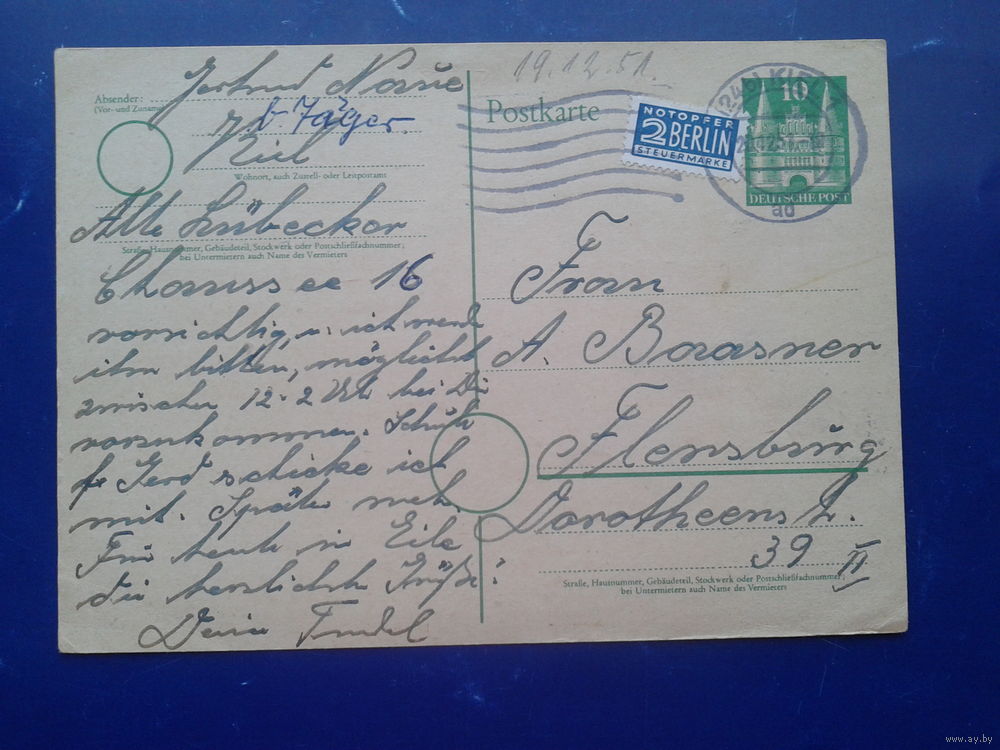 Gertrud Naue
Absender:
(Vor- und Zuname)
b/Jäger.
Kiel
Wohnort, auch Zustell- oder Leitpostamt
Alte Lübecker
Straße, Hausnummer, Gebäudeteil, Stockwerk oder Postschließfachnummer;
bei Untermietern auch Name des Vermieters
Chaussee 16
vorsichtig, u. ich werde
ihn bitten, möglichst
zwischen 12-2 Uhr bei Dir
vorzukommen. Schuh
f. Gerd schicke ich
mit. Später mehr.
Für heute in Eile
die herzlichste Grüße!
Deine Trudel
19.12.51.
Postkarte
NOTOPFER
2 BERLIN
STEUERMARKE
10
DEUTSCHE POST
(24b) KIEL 1
ad
Frau
A. Baasner
Flensburg
Dorotheenstr.
39 II
Straße, Hausnummer, Gebäudeteil, Stockwerk oder Postschließfachnummer;
bei Untermietern auch Name des Vermieters
www.ay.by